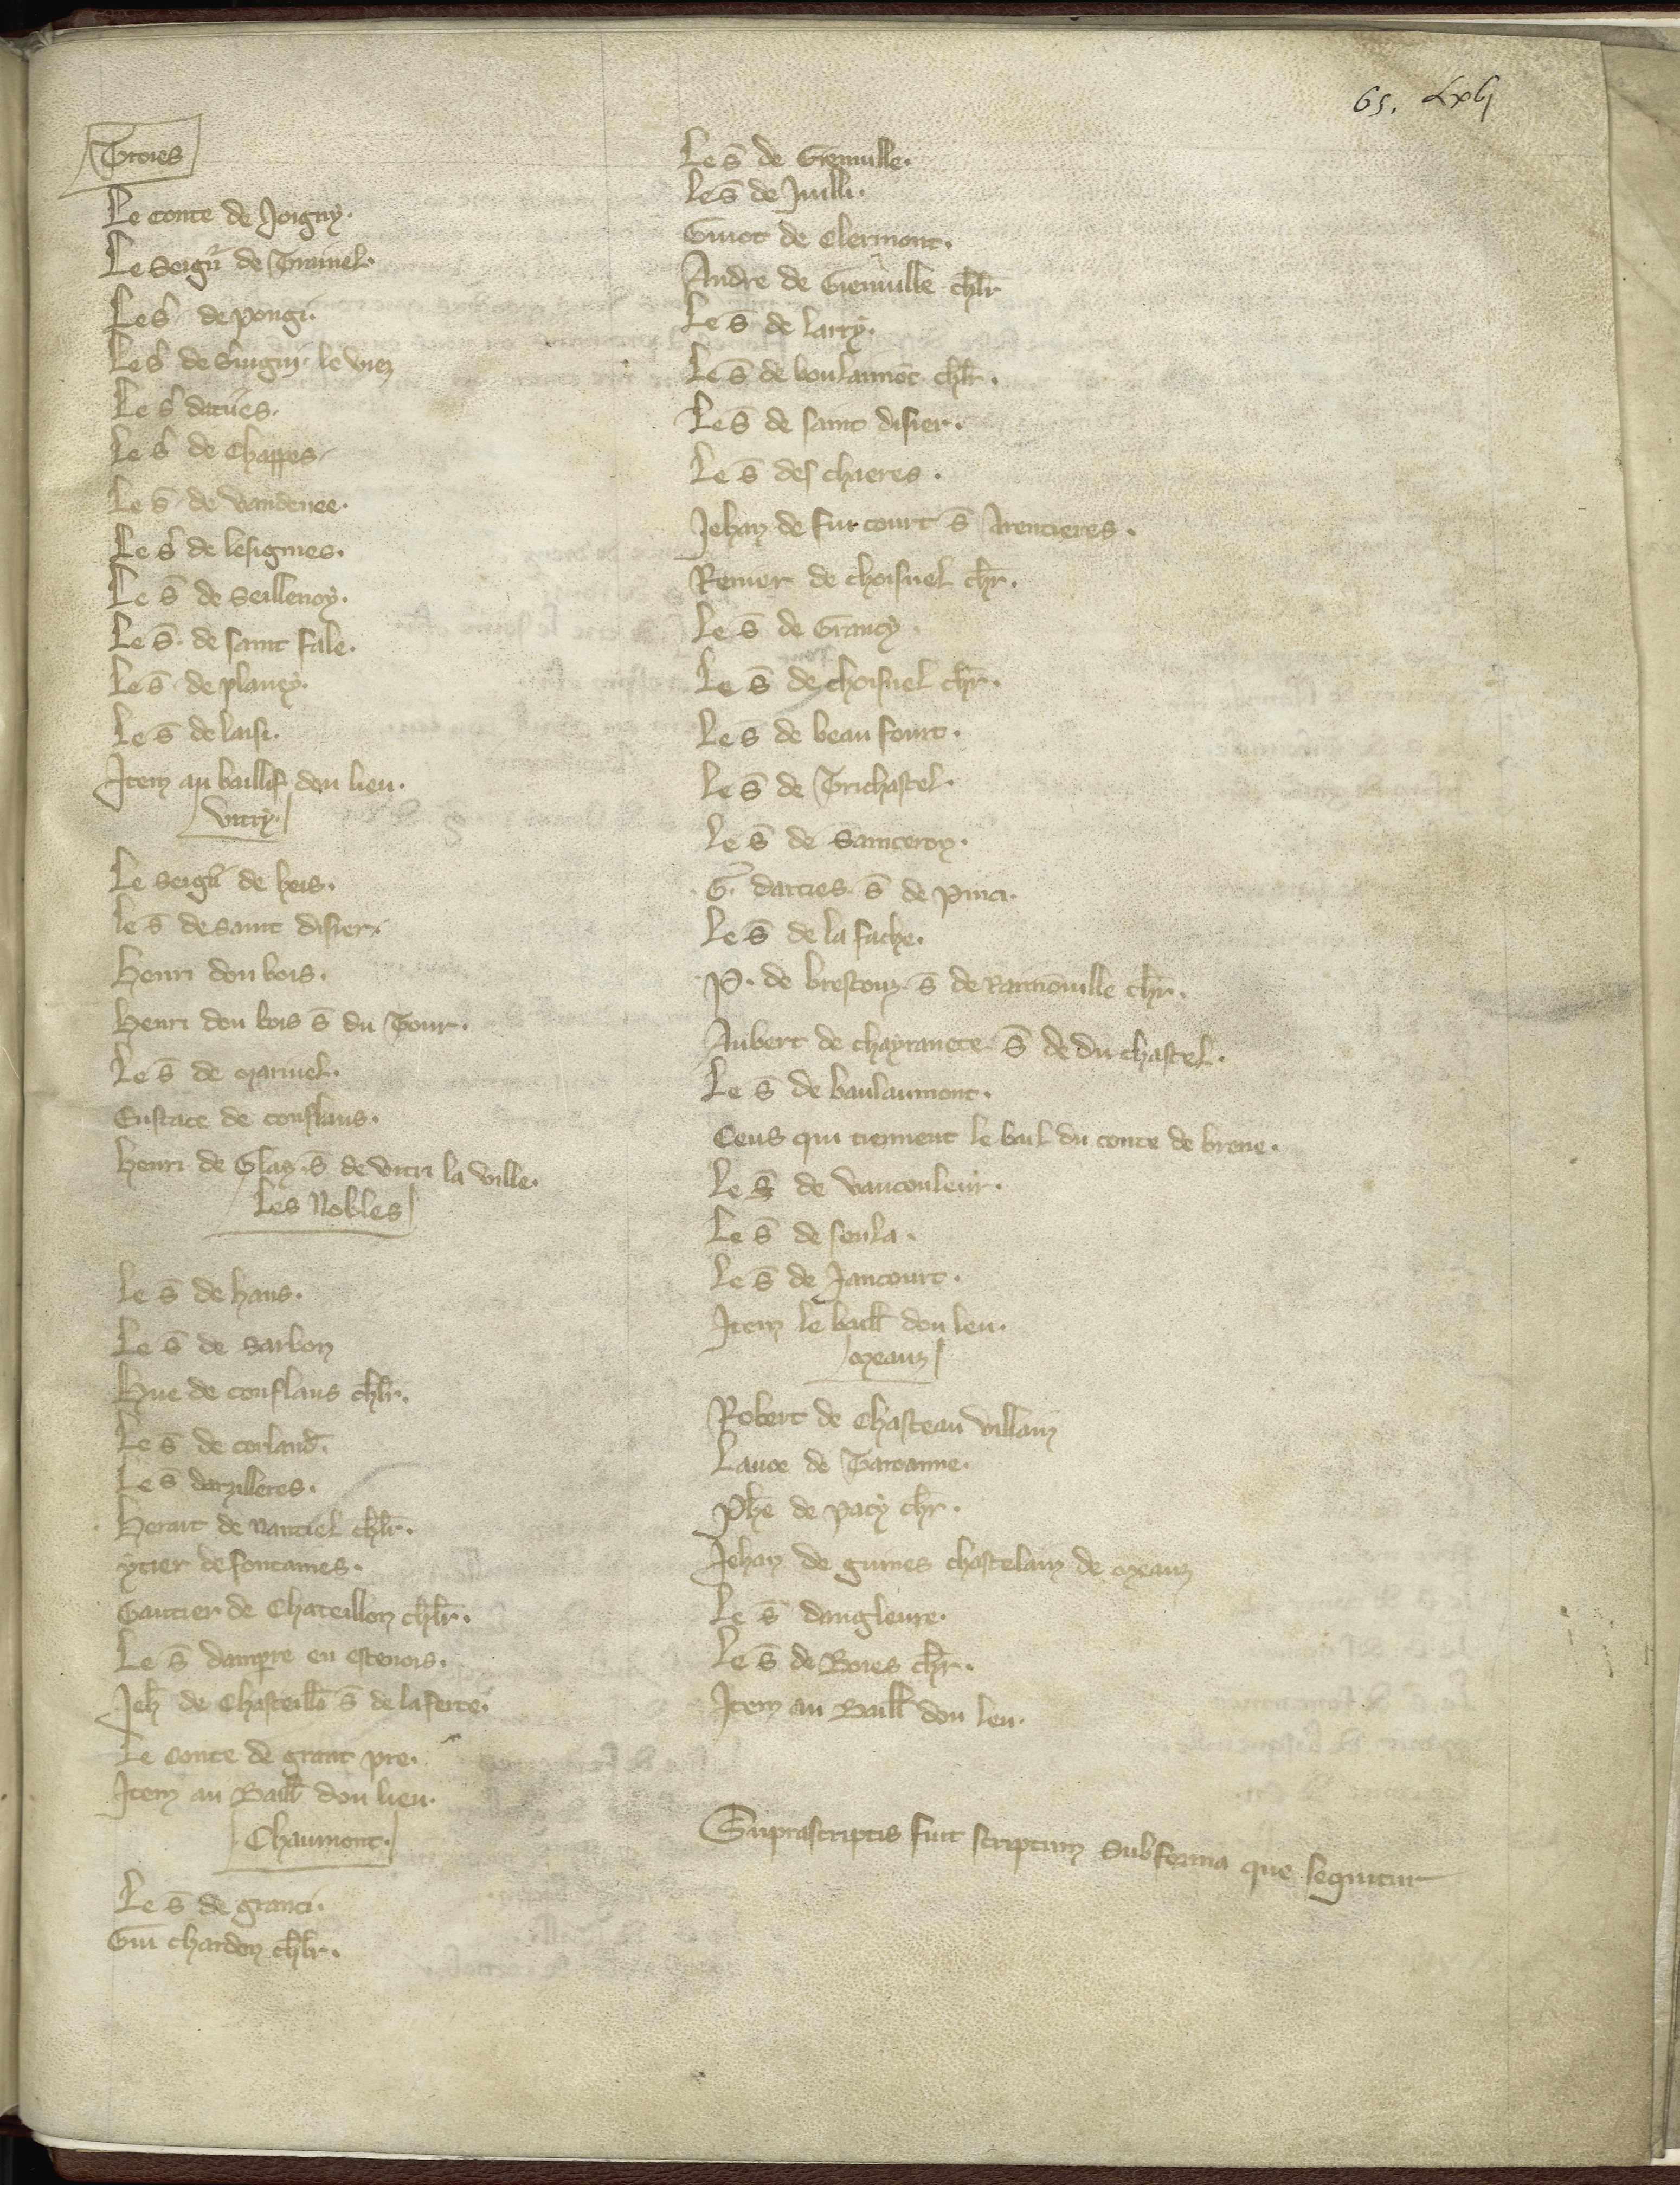 65. Lxvj
Troies
Le conte de Joigny.
Le seign̄r de Trainel.
Le s̄ de pongi.
Le s̄ de le viez
Le s̄
Le s̄ de Chappes
Le s̄ de vandeuee.
Le s̄ de lesignies.
Le s̄ de Seillenoy.
Le s̄ de saint fale.
Le s̄ de plancy.
Le s̄ de laisi.
Item au baillif dou lieu.
Vitry.
Le seign̄r de heis.
le s̄ de saint disier.
Henri dou bois.
Henri dou bois s̄ du Tour.
Le s̄ de
Eustace de conflans.
Henri de s̄ de vitri la ville.
Les Nobles
Le s̄ de hans.
Le s̄ de Sarbon
Hue de conflans chlr̄.
Le s̄ de corland̄.
Le s̄ darzilleres.
Herart de nantiel chlr̄.
ytier de fontaines.
Gautier de Chateillon chlr̄.
Le s̄ dampire en estenois.
Jeh̄ de Chasteillō s̄ de la ferte.
Le conte de grant pre.
Item au Baill̄ dou lieu.
Chaumont.
Le s̄ de granci.
Gui chardon chlr̄.
Le s̄ de Gienuille.
Le s̄ de Juilli.
Guiot de Clermont.
Andre de Gienuille chlr̄
Le s̄ de larry.
Le s̄ de boulaumōt chlr̄.
Le s̄ de saint disier.
Le s̄ des chaeres.
Jehan de fur court s̄
Renier de choisuel chr̄.
Le s̄ de Grancy.
Le s̄ de choisuel chr̄.
Le s̄ de beau fourt.
Le s̄ de Trichastel.
Le s̄ de
G. darcies s̄ de Pinci.
Le s̄ de la fache.
P. de s̄ de chr̄.
Aubert de s̄ de du chastel.
Le s̄ de baulaumont.
Ceus qui tiennent le bail du conte de brene.
Le s̄ de vaucouleur.
Le s̄ de seula.
Le s̄ de Jancourt.
Item le baill̄ dou leu.
Meaux
Robert de Chasteau villain
Lance de
Ph̄e de pacy chr̄.
Jehan de guines chastelain de Meaux
Le s̄ dangleure.
Le s̄ de Boies chr̄.
Item au Baill̄ dou leu.
Suprascriptis fuit scriptum sub forma que sequitur